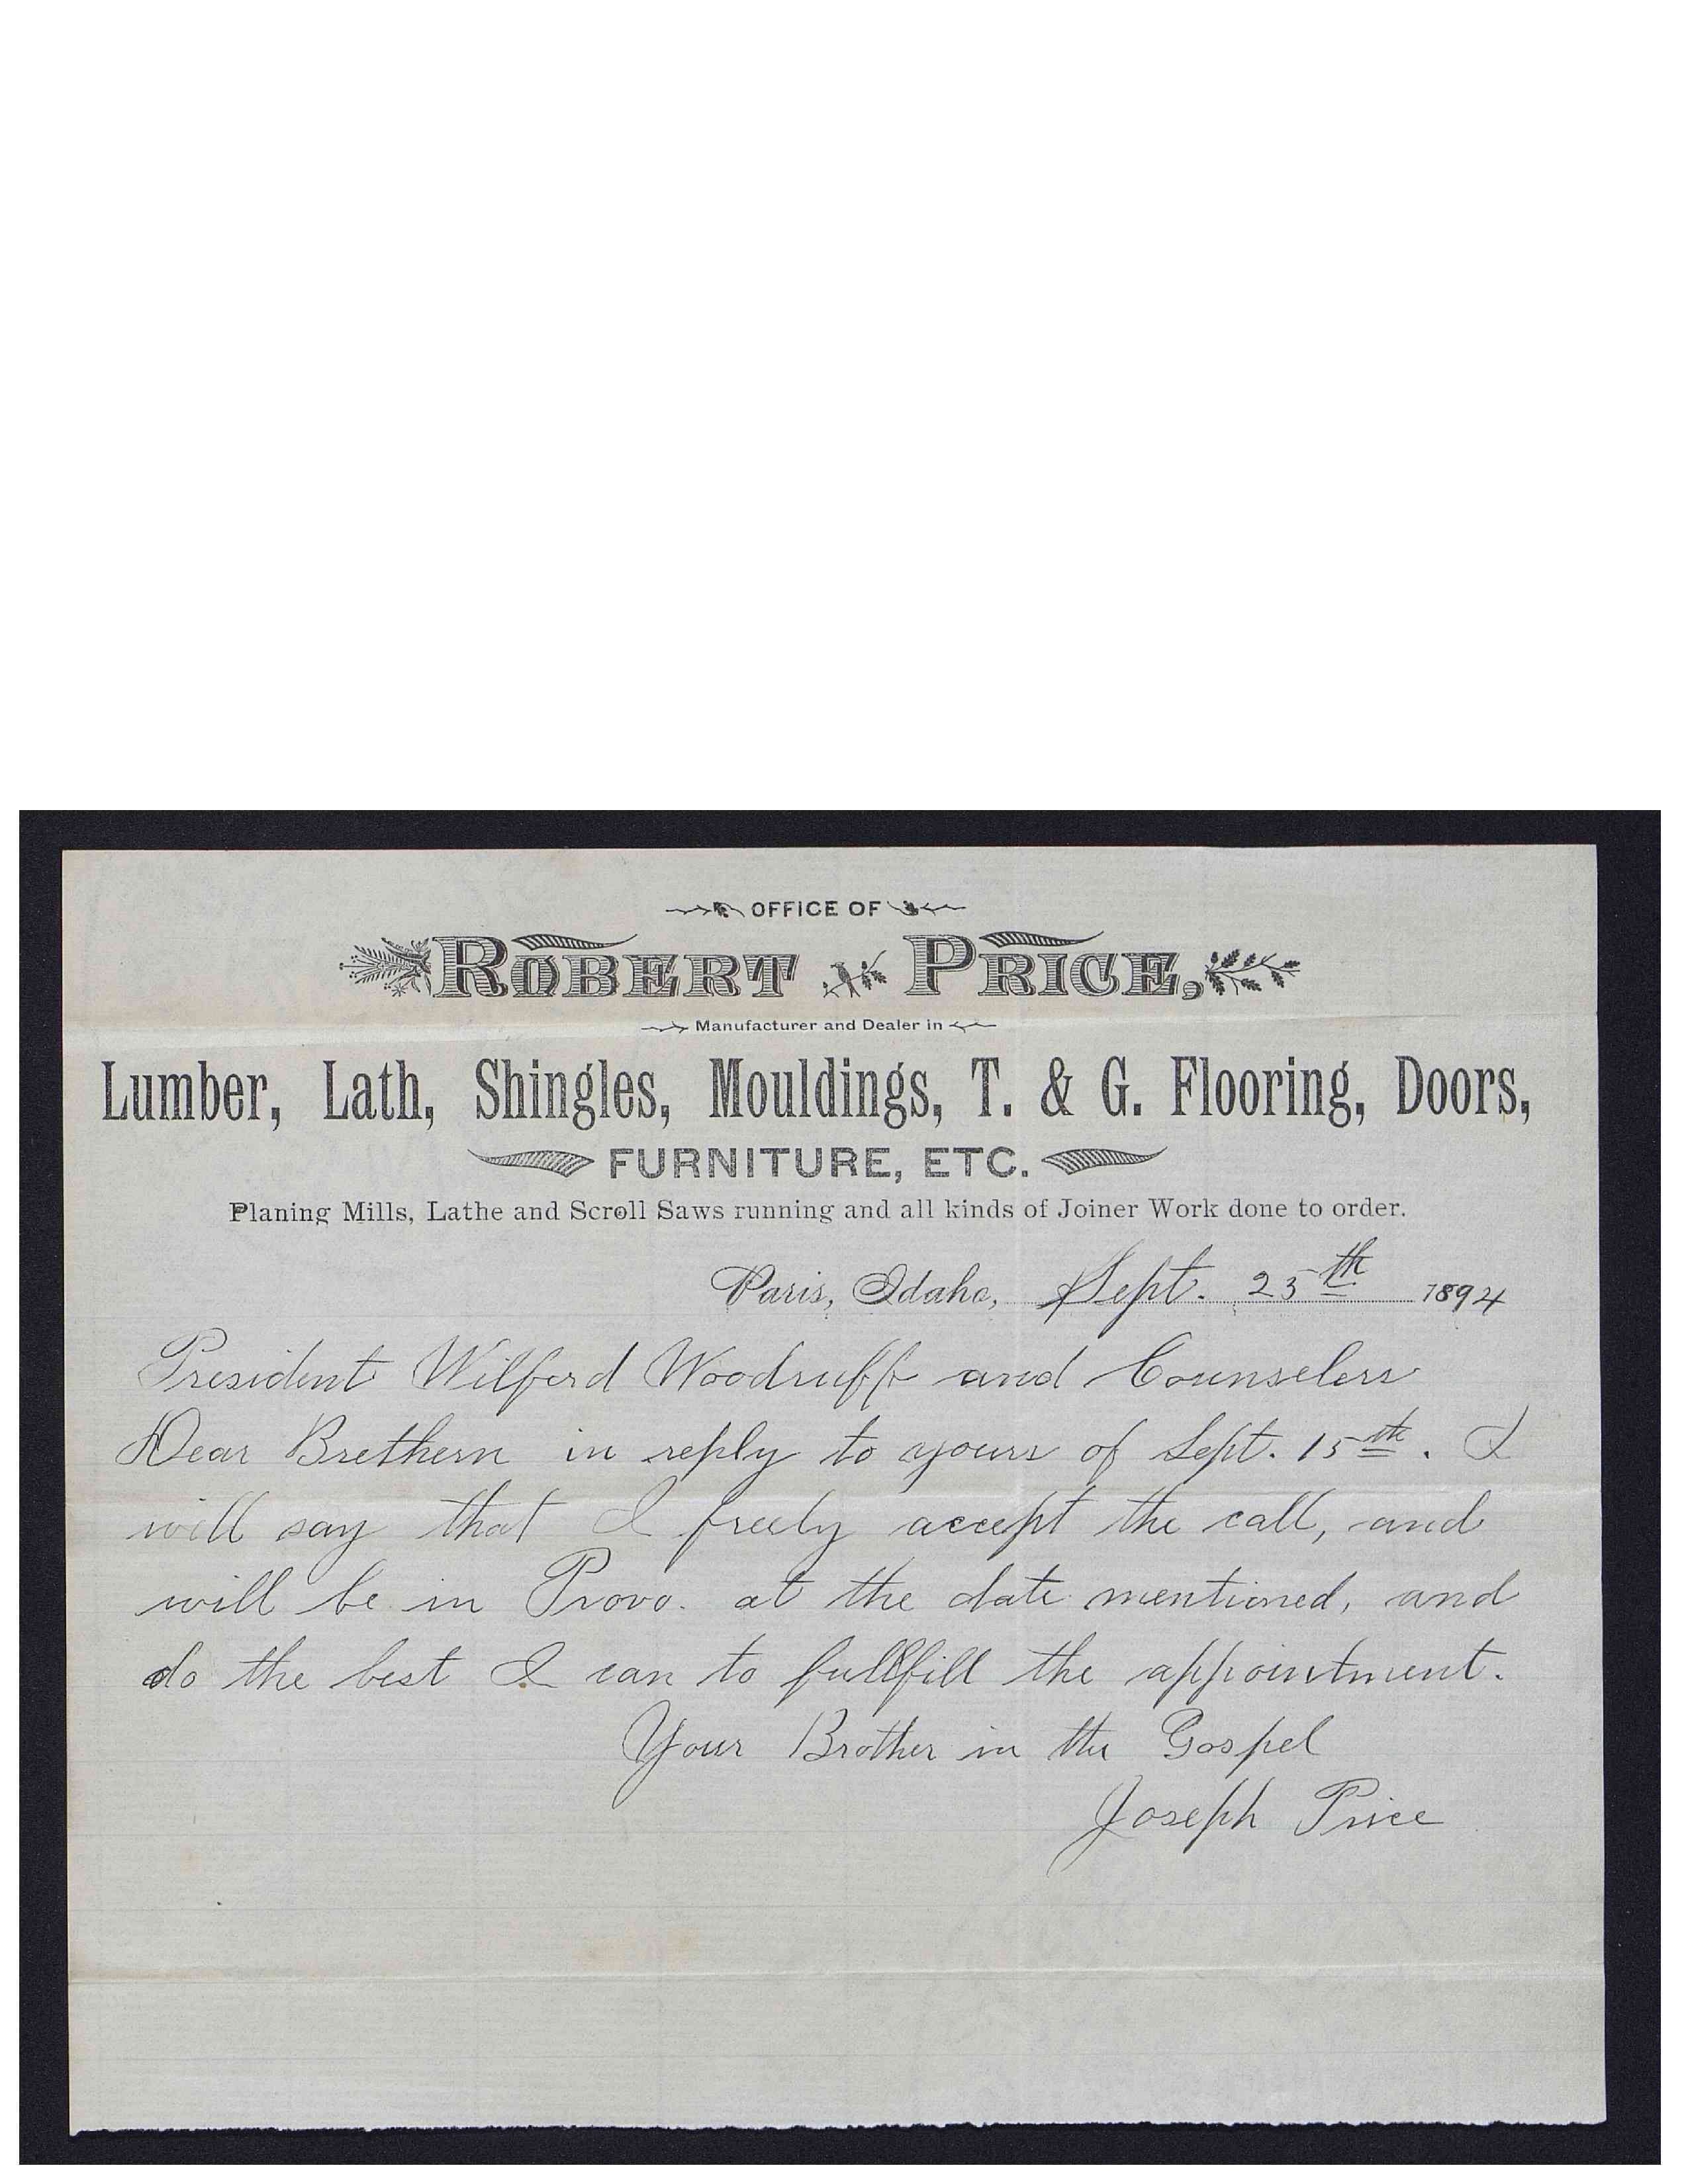 OFFICE OF
ROBERT PRICE,
Manufacturer and Dealer in
Lumber, Lath, Shingles, Mouldings, T. & G. Flooring, Doors,
FURNITURE, ETC.
Planing Mills, Lathe and Scroll Saws running and all kinds of Joiner Work done to order.
Paris, Idaho, Sept. 25th 1894
President Wilford Woodruff and Counselers
Dear Brethern in reply to yours of Sept. 15th. I
will say that I freely accept the call, and
will be in Provo. at the date mentioned, and
do the best I can to fullfill the appointment.
Your Brother in the Gospel
Joseph Price